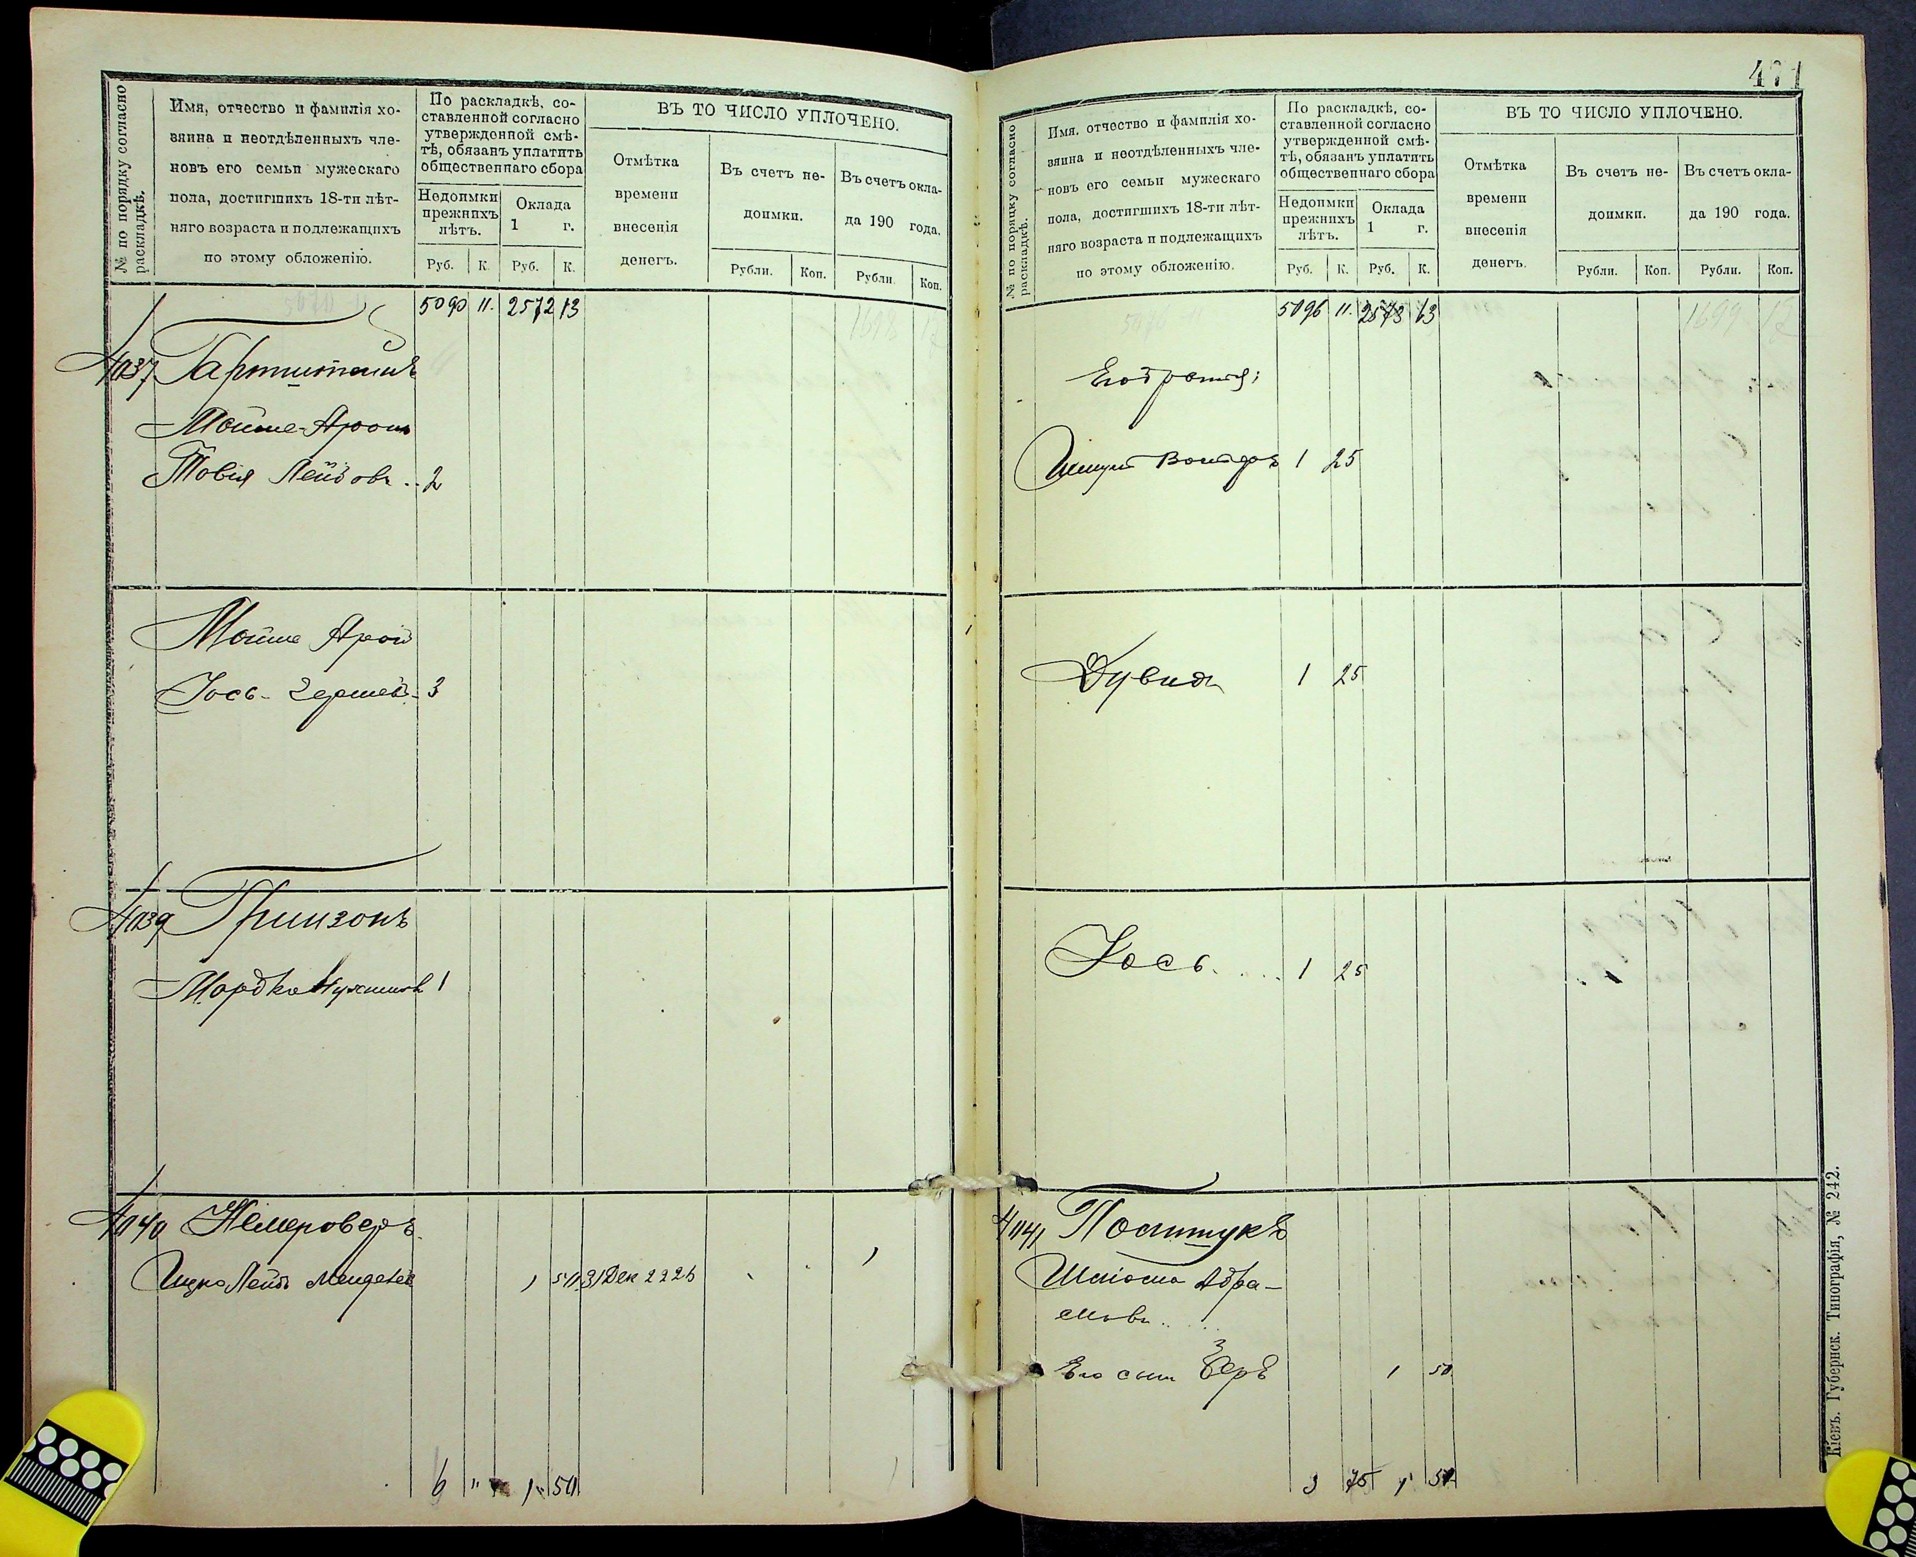 № по порядку согласно раскладкѣ.
Имя, отчество и фамилія хо-
зяина и неотдѣленныхъ чле-
новъ его семьи мужескаго
пола, достигшихъ 18-ти лѣт-
няго возраста и подлежащихъ
по этому обложенію.
По раскладкѣ, со-
ставленной согласно
утвержденной смѣ-
тѣ, обязанъ уплатить
общественнаго сбора
Недоимки
прежнихъ
лѣтъ.
Оклада
1 г.
Руб. К. Руб. К.
ВЪ ТО ЧИСЛО УПЛОЧЕНО.
Отмѣтка
времени
внесенія
денегъ.
Въ счетъ не-
доимки.
Рубли. Коп.
Въ счетъ окла-
да 190 года.
Рубли Коп.
5090 11. 2572 13
4037 Гартштейнъ
Мойше-Аронъ
Товія Лейбовъ .. 2
Мойше Арон
Іось-Гершко 3
4039 Гринзонъ
Мордко 1
4040 Немероверъ
Ицко Лейбъ Мендел 1 50 31 Дек 2226
6 " 1 50
471
№ по порядку согласно раскладкѣ.
Имя, отчество и фамилія хо-
зяина и неотдѣленныхъ чле-
новъ его семьи мужескаго
пола, достигшихъ 18-ти лѣт-
няго возраста и подлежащихъ
по этому обложенію.
По раскладкѣ, со-
ставленной согласно
утвержденной смѣ-
тѣ, обязанъ уплатить
общественнаго сбора
Недоимки
прежнихъ
лѣтъ.
Оклада
1 г.
Руб. К. Руб. К.
ВЪ ТО ЧИСЛО УПЛОЧЕНО.
Отмѣтка
времени
внесенія
денегъ.
Въ счетъ не-
доимки.
Рубли. Коп.
Въ счетъ окла-
да 190 года.
Рубли. Коп.
5096 11. 2573 63
Его братья;
1 25
Дувид 1 25
Іось. .... 1 25
4041 Постукъ
Шліома Абра-
мовъ ....
Его сын Берѣ 1 50
3 75 1 50
Кіевъ. Губернск. Типографія, № 242.